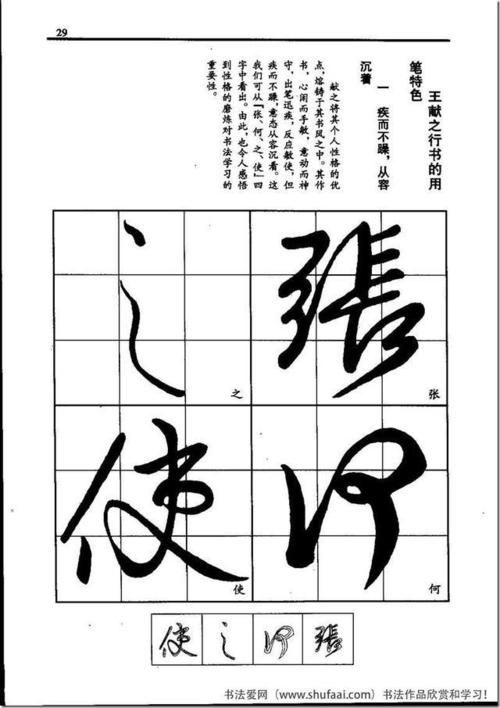 29
王献之行书的用
笔特色
一 疾而不躁，从容
沉着
献之将其个人性格的优
点，熔铸于其书风之中。其作
书，心闲而手敏，意动而神
守，出笔迅疾，反应敏使，但
疾而不躁，意态从容沉着。这
我们可从“张、何、之、使”四
字中看出。由此，也令人感悟
到性格的磨炼对书法学习的
重要性。
張
张
何
何
之
之
使
使
張
何
之
使
书法爱网（www.shufaai.com）书法作品欣赏和学习！